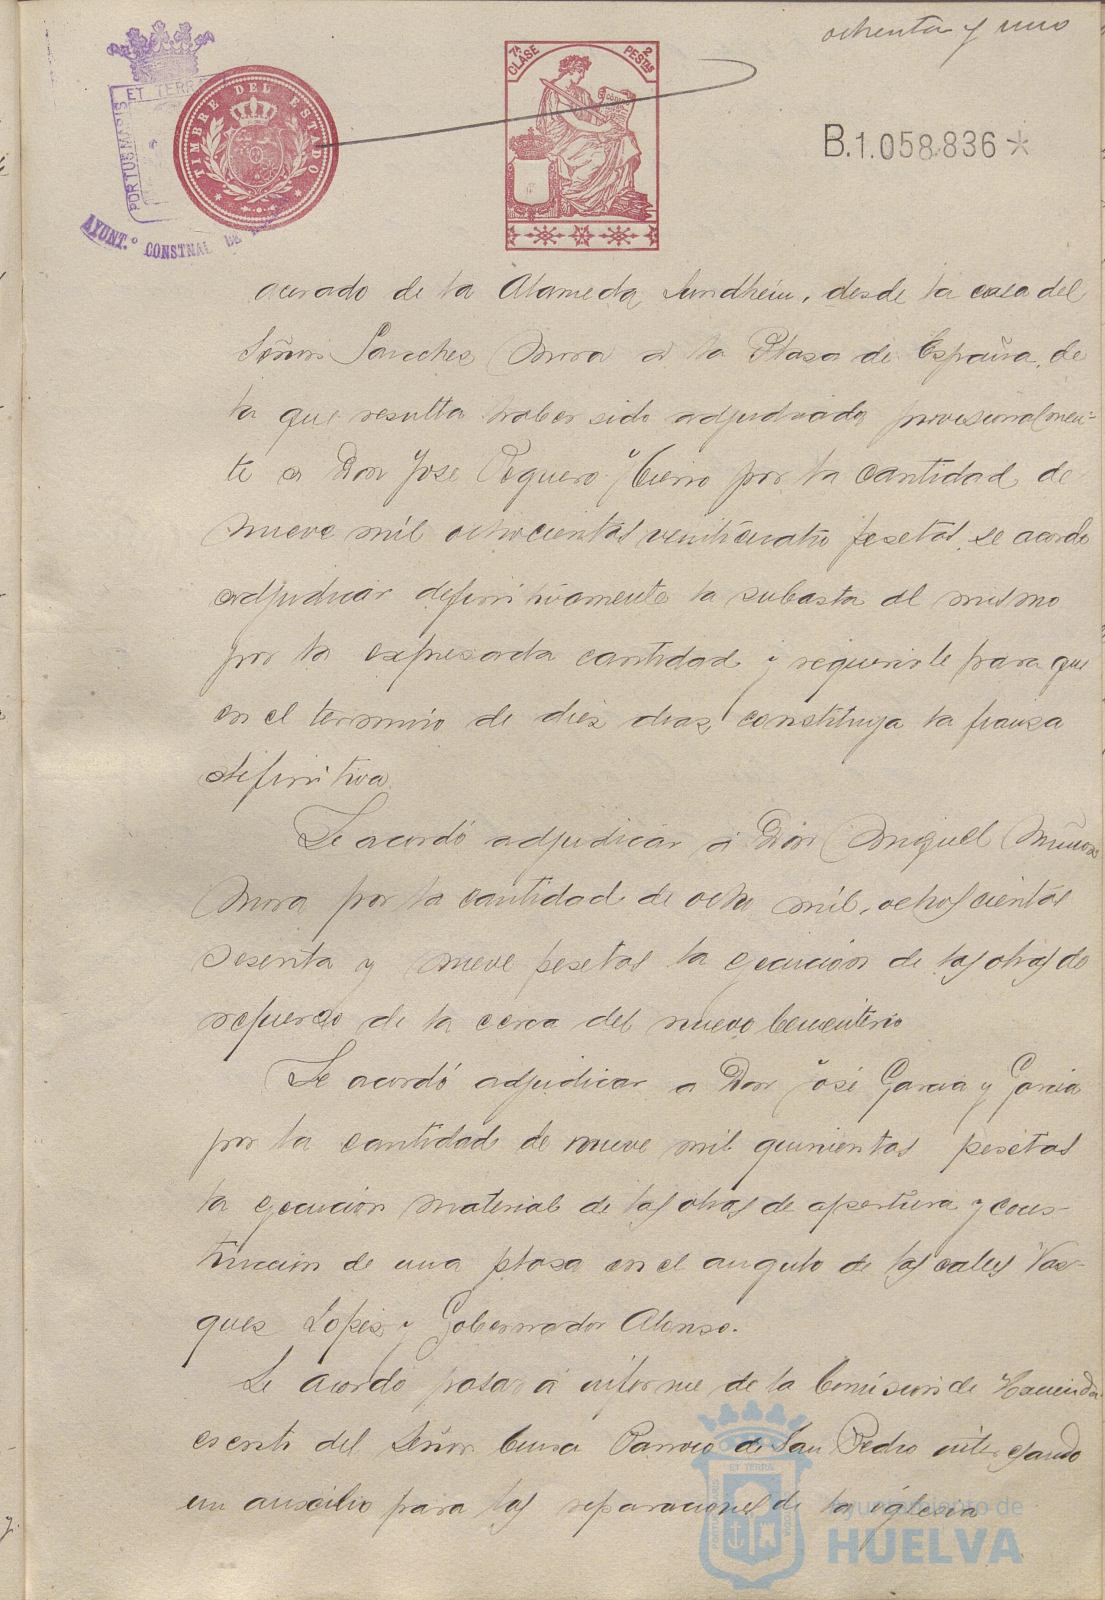 ochenta y uno
ET TERRA
PORTUS MARIS
AYUNT.º CONSTNAL DE
TIMBRE DEL ESTADO
7ª CLASE 2 PESTAS
B.1.058.836*
acerado de la Alameda Sundheim, desde la casa del
Señor Sanchez Mora á la Plasa de España, de
la que resulta haber sido adjudicada provisionalmen-
te a Don Jose Peguero y Cierro por la cantidad de
nueve mil ochocientas veinticuatro pesetas, se acordo
adjudicar definitivamente la subasta al mismo
por la expresada cantidad y requerirle para que
en el termino de diez dias constituya la fianza
definitiva.
Se acordó adjudicar á Don Miguel Muñoz
Mora por la cantidad de ocho mil, ochoscientas
sesenta y nueve pesetas la ejecución de las obras de
refuerzo de la cerca del nuevo Cementerio
Se acordó adjudicar a Don José Garcia y Garcia
por la cantidad de nueve mil quinientas pesetas
la ejecución material de las obras de apertura y cons-
trucción de una plasa en el angulo de las calles Vaz-
quez Lopez y Gobernador Alonso.
Se acordó pasar á informe de la Comisión de Hacienda
escrito del Señor Cura Parroco de San Pedro
un auxilio para las reparaciones de la iglesia
PORTUS MARIS ET TERRÆ CUSTODIA
Ayuntamiento de
HUELVA